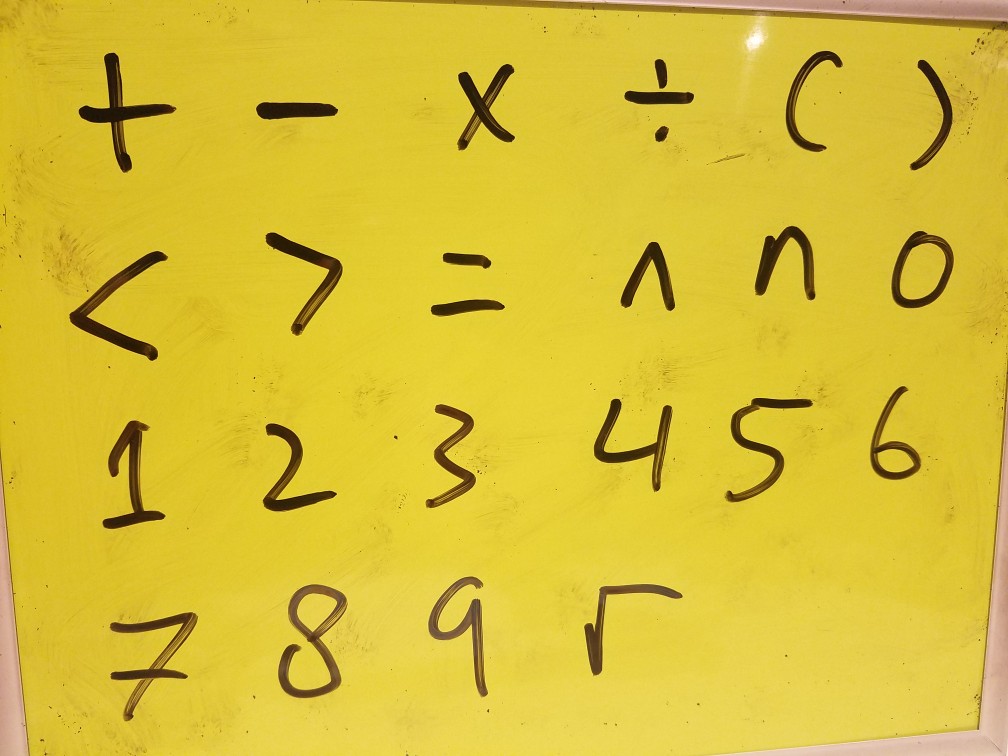 + - x ÷ ( )
< > = ^ n 0
1 2 3 4 5 6
7 8 9 √